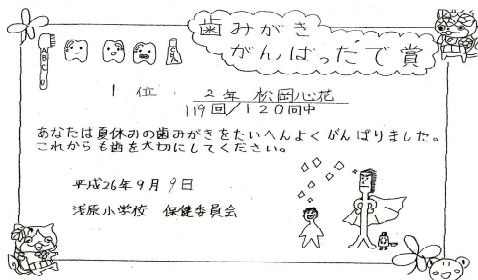 歯みがき
がんばったで賞
1位
2年 松岡心花
119回/120回中
あなたは夏休みの歯みがきをたいへんよくがんばりました。
これからも歯を大切にしてください。
平成26年9月9日
浅原小学校 保健委員会